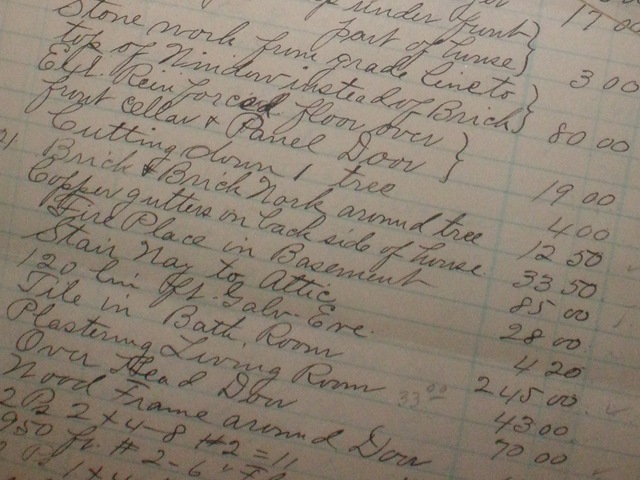 under front } 17 00
part of house }
Stone work from grade line to } 3 00
top of Window instead of Brick }
Ext. Reinforced floor over } 80 00
front cellar & Panel Door }
Cutting down 1 tree 19 00
Brick & Brick Work around tree 4 00
Copper gutters on back side of house 12 50
Fire Place in Basement 33 50
Stair Way to Attic 85 00
120 lin ft. Galv. Eve. 28 00
Tile in Bath Room 4 20
Plastering Living Room 33 00 245 00
Over Head Door 43 00
Wood Frame around Door 70 00
2 Ps 2 x 4 - 8 #2 = 11
950 ft. # 2 - 6"
1 x 4